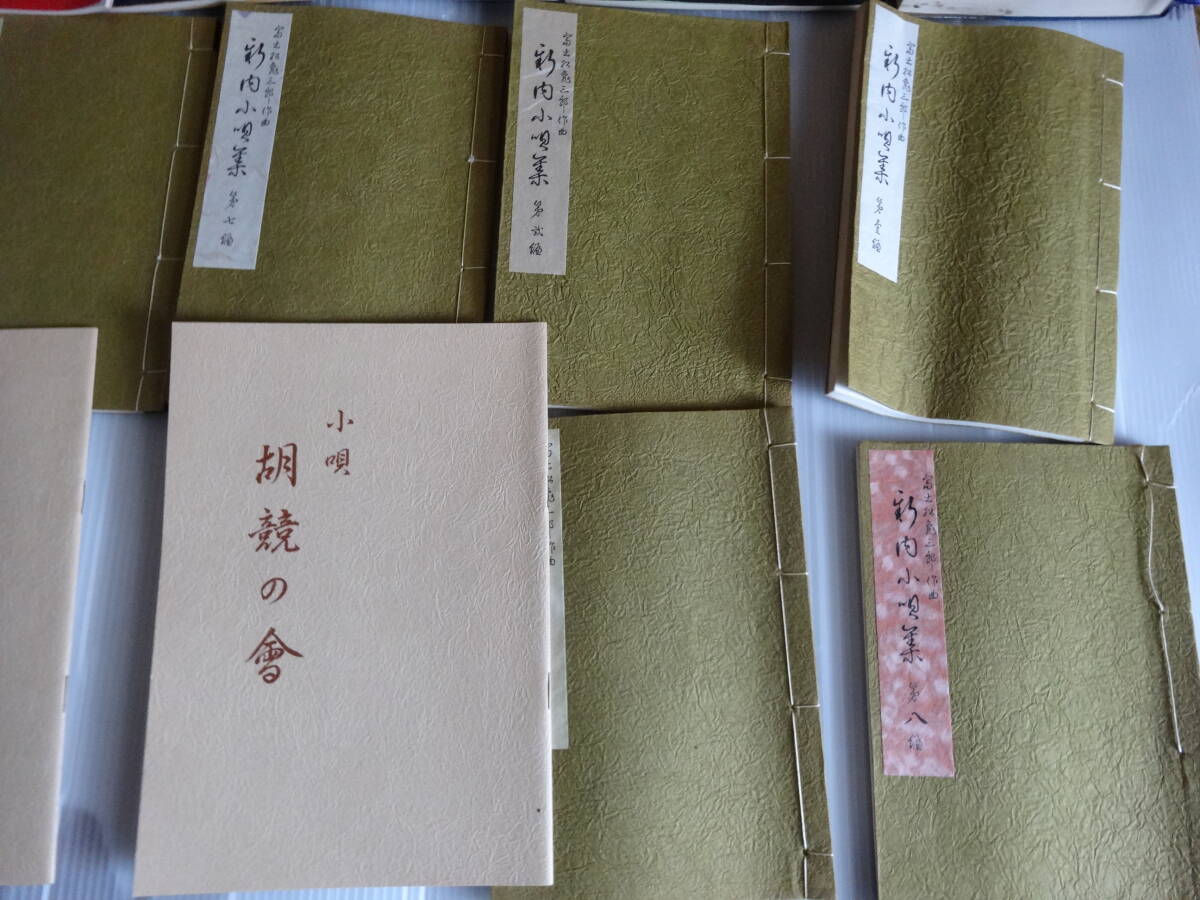 富士松亀三郎作曲
新内小唄集 第七編
富士松亀三郎作曲
新内小唄集 第弐編
富士松亀三郎作曲
新内小唄集 第壹編
小唄
胡競の會
富士松亀三郎作曲
新内小唄集 第八編